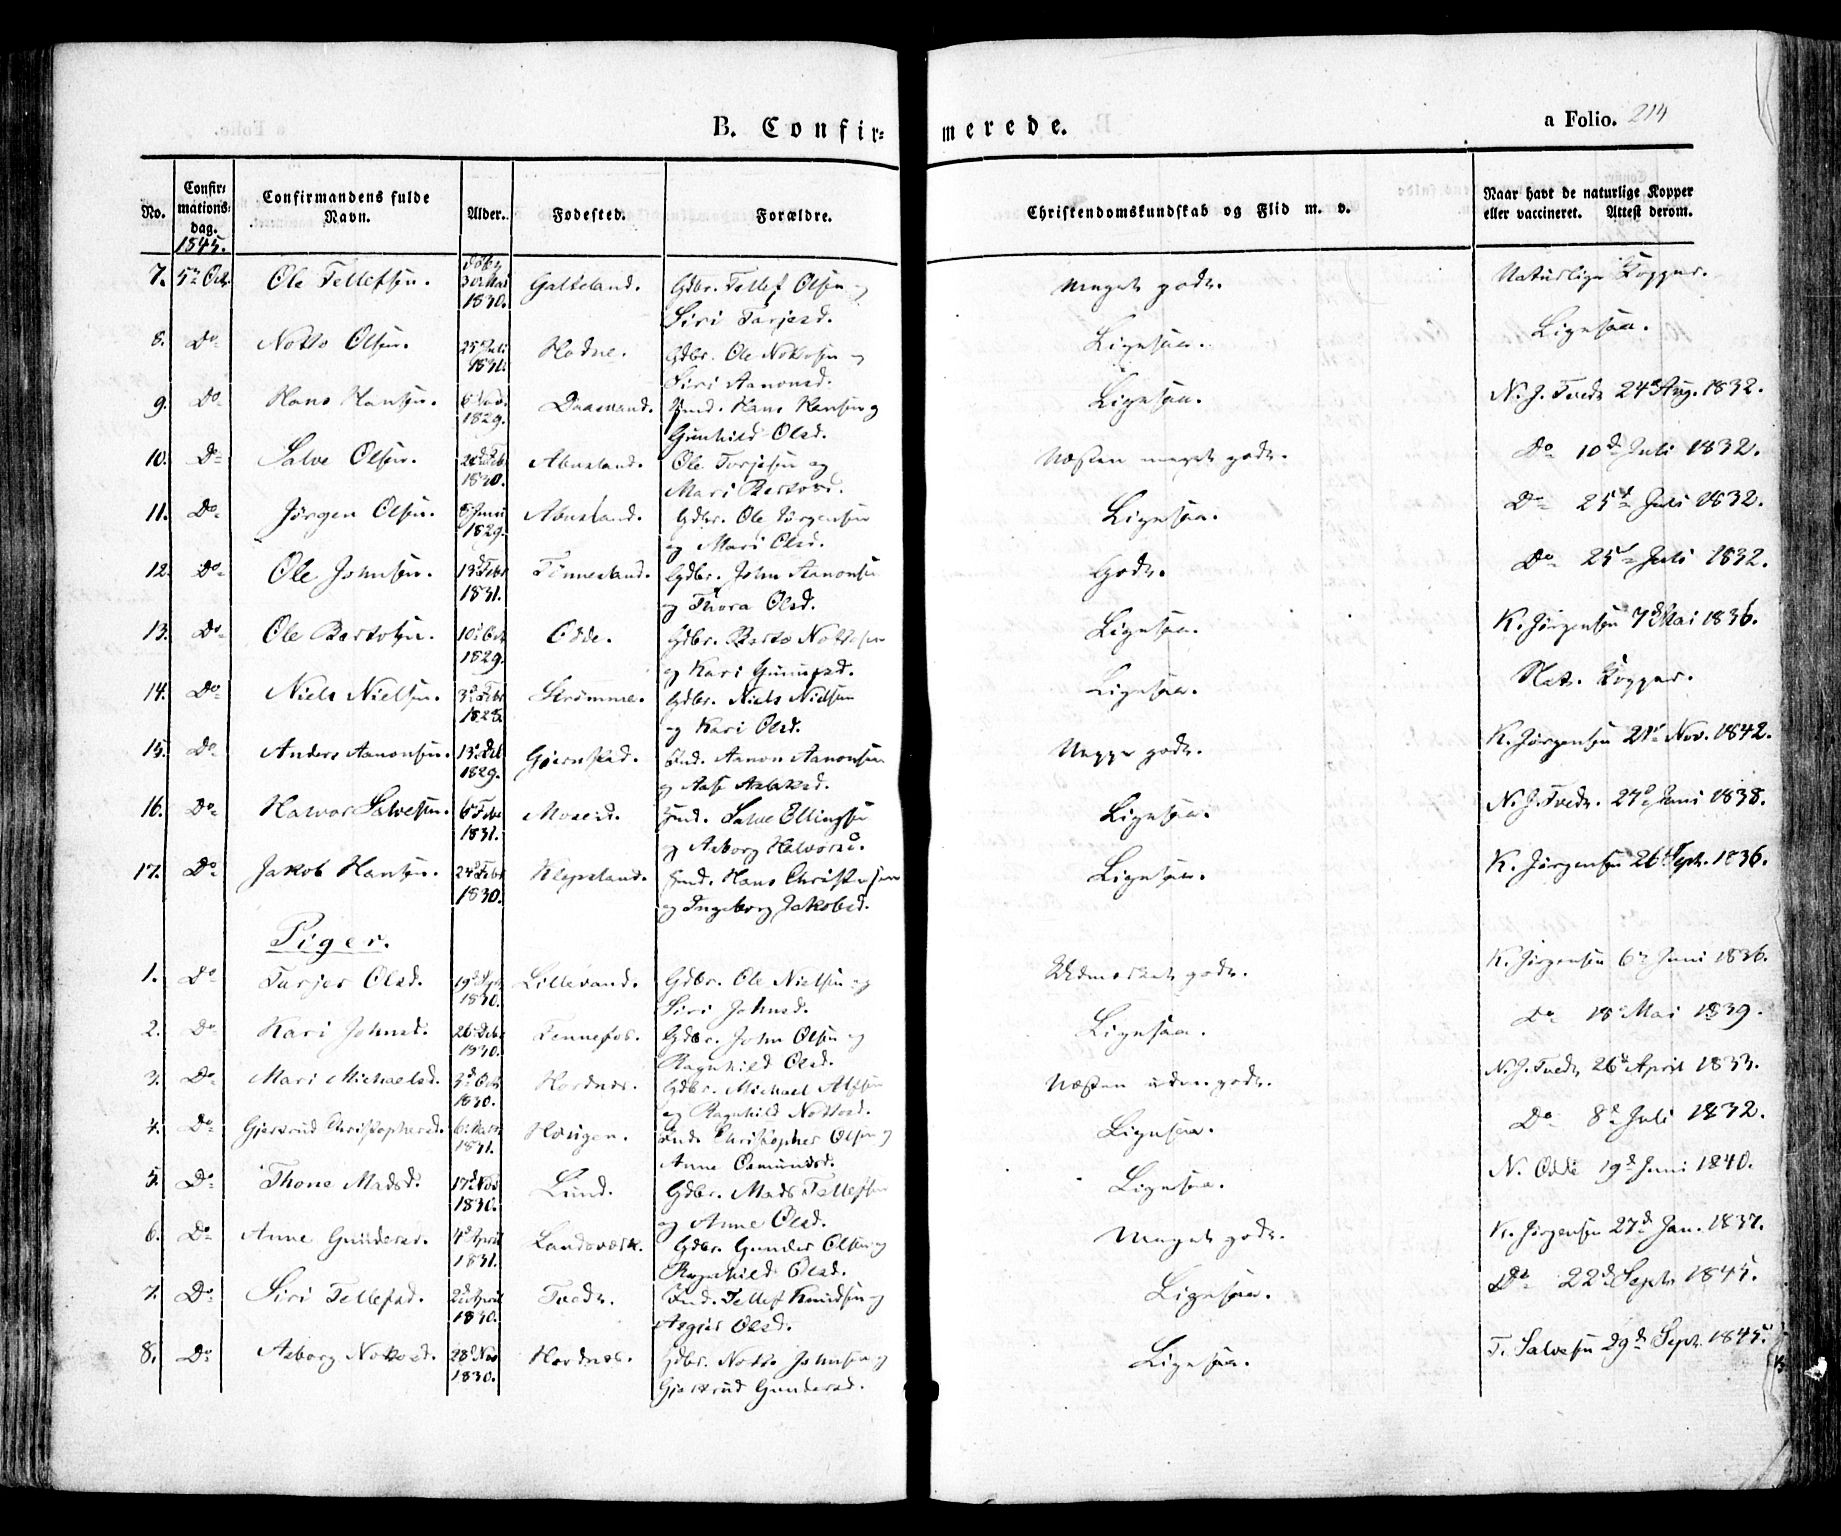 B. Confir- merede. a Folio. 214
No. Confirmationsdag. Confirmandens fulde Navn. Alder. Fødested. Forældre. Christendomskundskab og Flid m. v. Naar havt de naturlige Kopper eller vaccineret. Attest derom.
1845.
7. 5te Oct. Ole Tellefsen. døbt 30 Mai 1830. Galteland. Gdbr. Tellef Olsen og Siri Tarjesd. Meget godt. Naturlige Kopper.
8. Do Notto Olsen. 25 Juli 1831. Hodne. Gdbr. Ole Nottosen og Siri Aanonsd. Ligesaa. Ligesaa.
9. Do Hans Hansen. 1829. Daasvand. Ind. Hans Hansen og Gunhild Olsd. Ligesaa. N. J. Tvedt 24de Aug. 1832.
10. Do Salve Olsen. Feb 1830. Abusland. Ole Torjesen og Mari Bertovsd. Næsten meget godt. Do 10de Juli 1832.
11. Do Jørgen Olsen. 8 Juni 1829. Abusland. Gdbr. Ole Jørgensen og Mari Olsd. Ligesaa. Do 25de Juli 1832.
12. Do Ole Johnsen. 13de Febr 1831. Tønnesland. Gdbr. John Aanonsen og Thora Olsd. Godt. Do 25de Juli 1832.
13. Do Ole Bertosen. 10de Oct 1829. Odde. Gdbr. Berto Nottosen og Kari Gunufsd. Ligesaa. K. Jørgensen 7de Mai 1836.
14. Do Niels Nielsen. 3de Febr 1828. Strømme. Gdbr. Niels Nielsen og Kari Olsd. Ligesaa. Nat. Kopper.
15. Do Anders Aanonsen. 13de 1829. Gjernstad. Ind. Aanon Aanonsen og Aase Aslaksd. Neppe godt. K. Jørgensen 21de Nov. 1842.
16. Do Halvor Salvesen. 6 Febr 1831. Moseid. Ind. Salve Ellingsen og Asborg Halvorsd. Ligesaa. N. J. Tvedt. 27de Juni 1838.
17. Do Jakob Hansen. 24de Febr 1830. Klepsland. Ind. Hans Christensen og Ingeborg Jakobsd. Ligesaa. K. Jørgensen 26de Sept. 1836.
Piger.
1. Do Tarjer Olsd. 19de 1830. Lillevand. Gdbr. Ole Nielsen og Siri Johnsd. Udmærket godt. K. Jørgensen 6te Juni 1836.
2. Do Kari Johnsd. 26de 1830. Fennefos. Gdbr. John Olsen og Ragnhild Olsd. Ligesaa. Do 18de Mai 1839.
3. Do Mari Michaelsd. 3de Oct 1830. Hordnes. Gdbr. Michael Alfsen og Ragnhild Nottosd. Næsten uden godt. N. J. Tvedt 26de April 1833.
4. Do Gjertrud Christophersd. 6te Marts 1831. Hougen. Ind. Christopher Olsen og Anne Osmundsd. Ligesaa. Do 8de Juli 1832.
5. Do Thone Madsd. 17de Nov 1830. Lund. Gdbr. Mads Tellefsen og Anne Olsd. Ligesaa. N. Odde 19de Juni 1840.
6. Do Anne Gundersd. 4de April 1831. Landsværk. Gdbr. Gunder Olsen og Ragnhild Olsd. Meget godt. K. Jørgensen 27de Jan. 1837.
7. Do Siri Tellefsd. 2de April 1830. Tvedt. Ind. Tellef Knudsen og Asgjer Olsd. Ligesaa. Do 22de Septr 1845.
8. Do Asborg Nottosd. 28de Nov 1830. Hordnes. Gdbr. Notto Johnsen og Gjertrud Gundersd. Ligesaa. T. Salvesen 29de Sept. 1845.